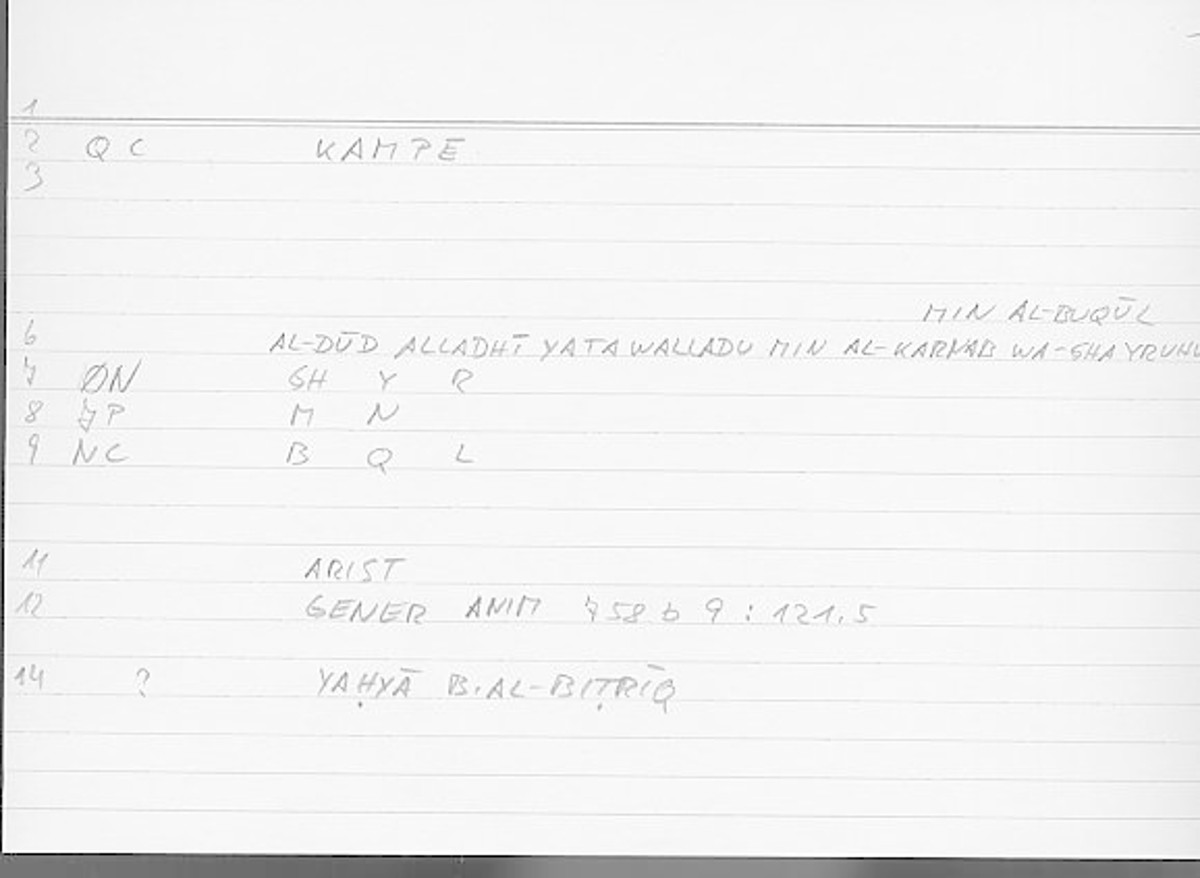 1
2 QC KAMPE
3
MIN AL-BUQŪL
6 AL-DŪD ALLADHĪ YATAWALLADU MIN AL-KARNAB WA-GHAYRUHU
7 ØN GH Y R
8 JP M N
9 NC B Q L
11 ARIST
12 GENER ANIM 758 b 9 : 121.5
14 ? YAḤYĀ B. AL-BIṬRĪQ